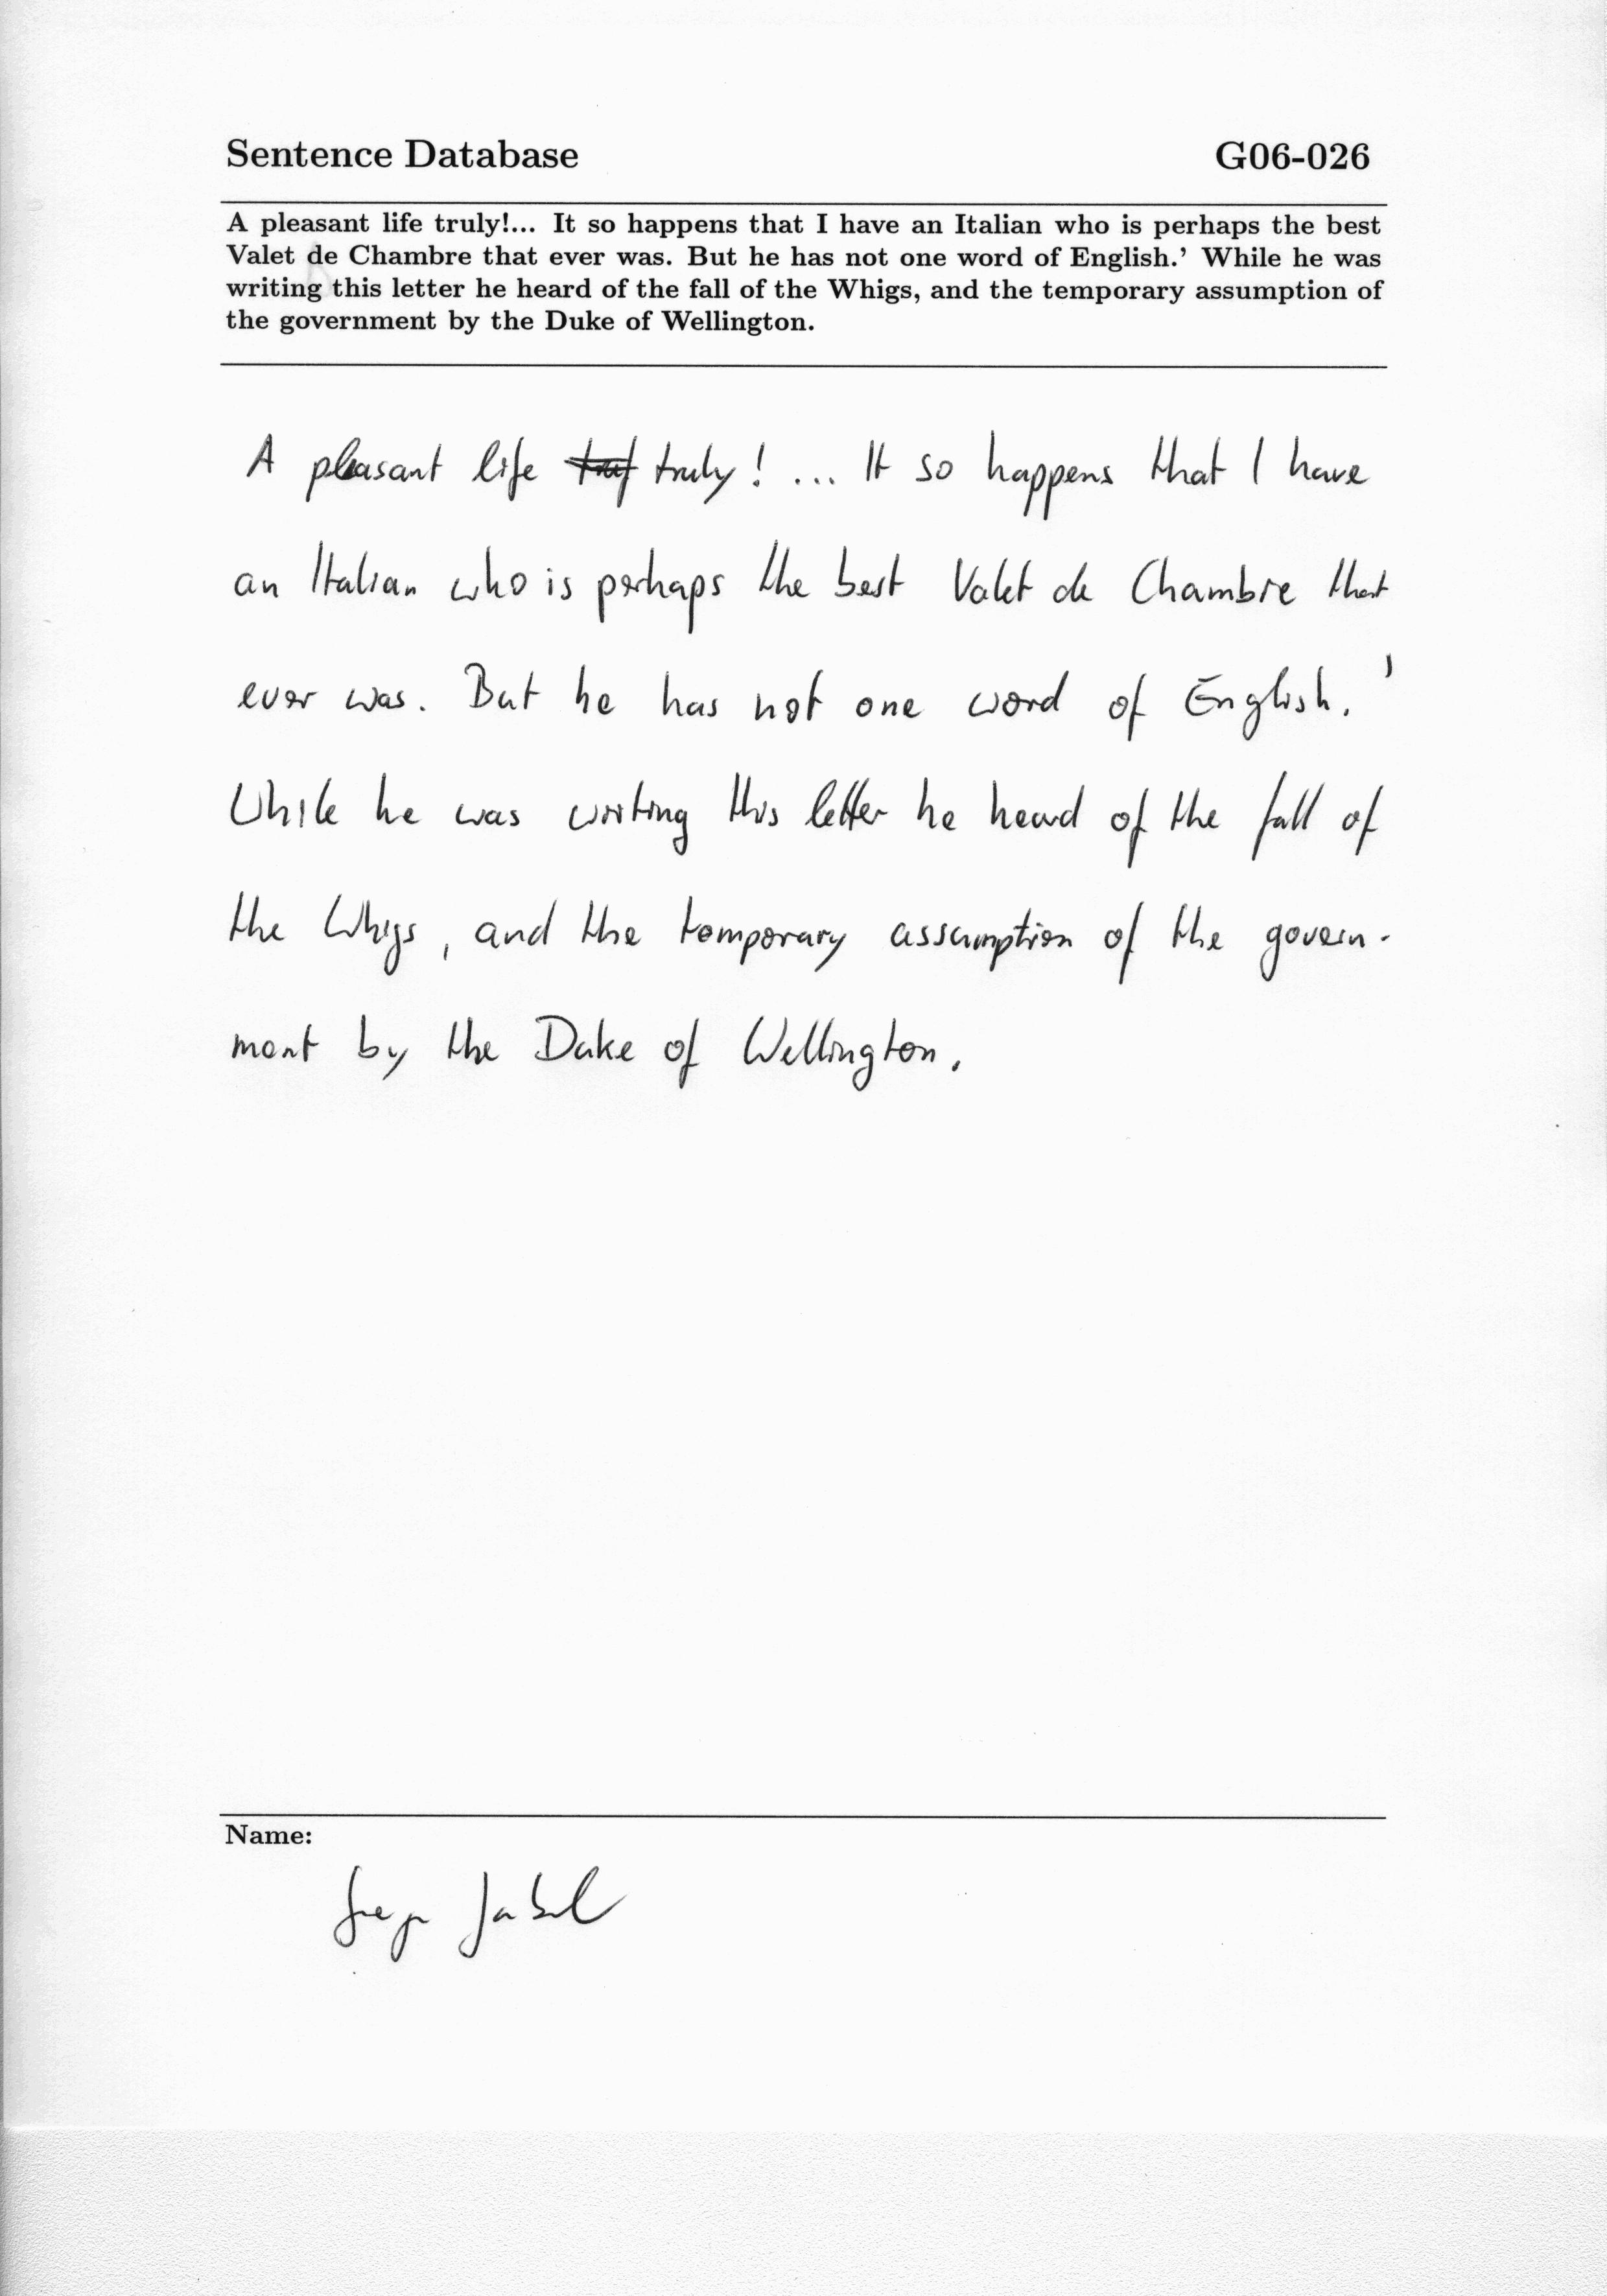 Sentence Database G06-026
A pleasant life truly!... It so happens that I have an Italian who is perhaps the best
Valet de Chambre that ever was. But he has not one word of English.' While he was
writing this letter he heard of the fall of the Whigs, and the temporary assumption of
the government by the Duke of Wellington.
A pleasant life truly! ... It so happens that I have
an Italian who is perhaps the best Valet de Chambre that
ever was. But he has not one word of English.'
While he was writing this letter he heard of the fall of
the Whigs, and the temporary assumption of the govern-
ment by the Duke of Wellington.
Name: